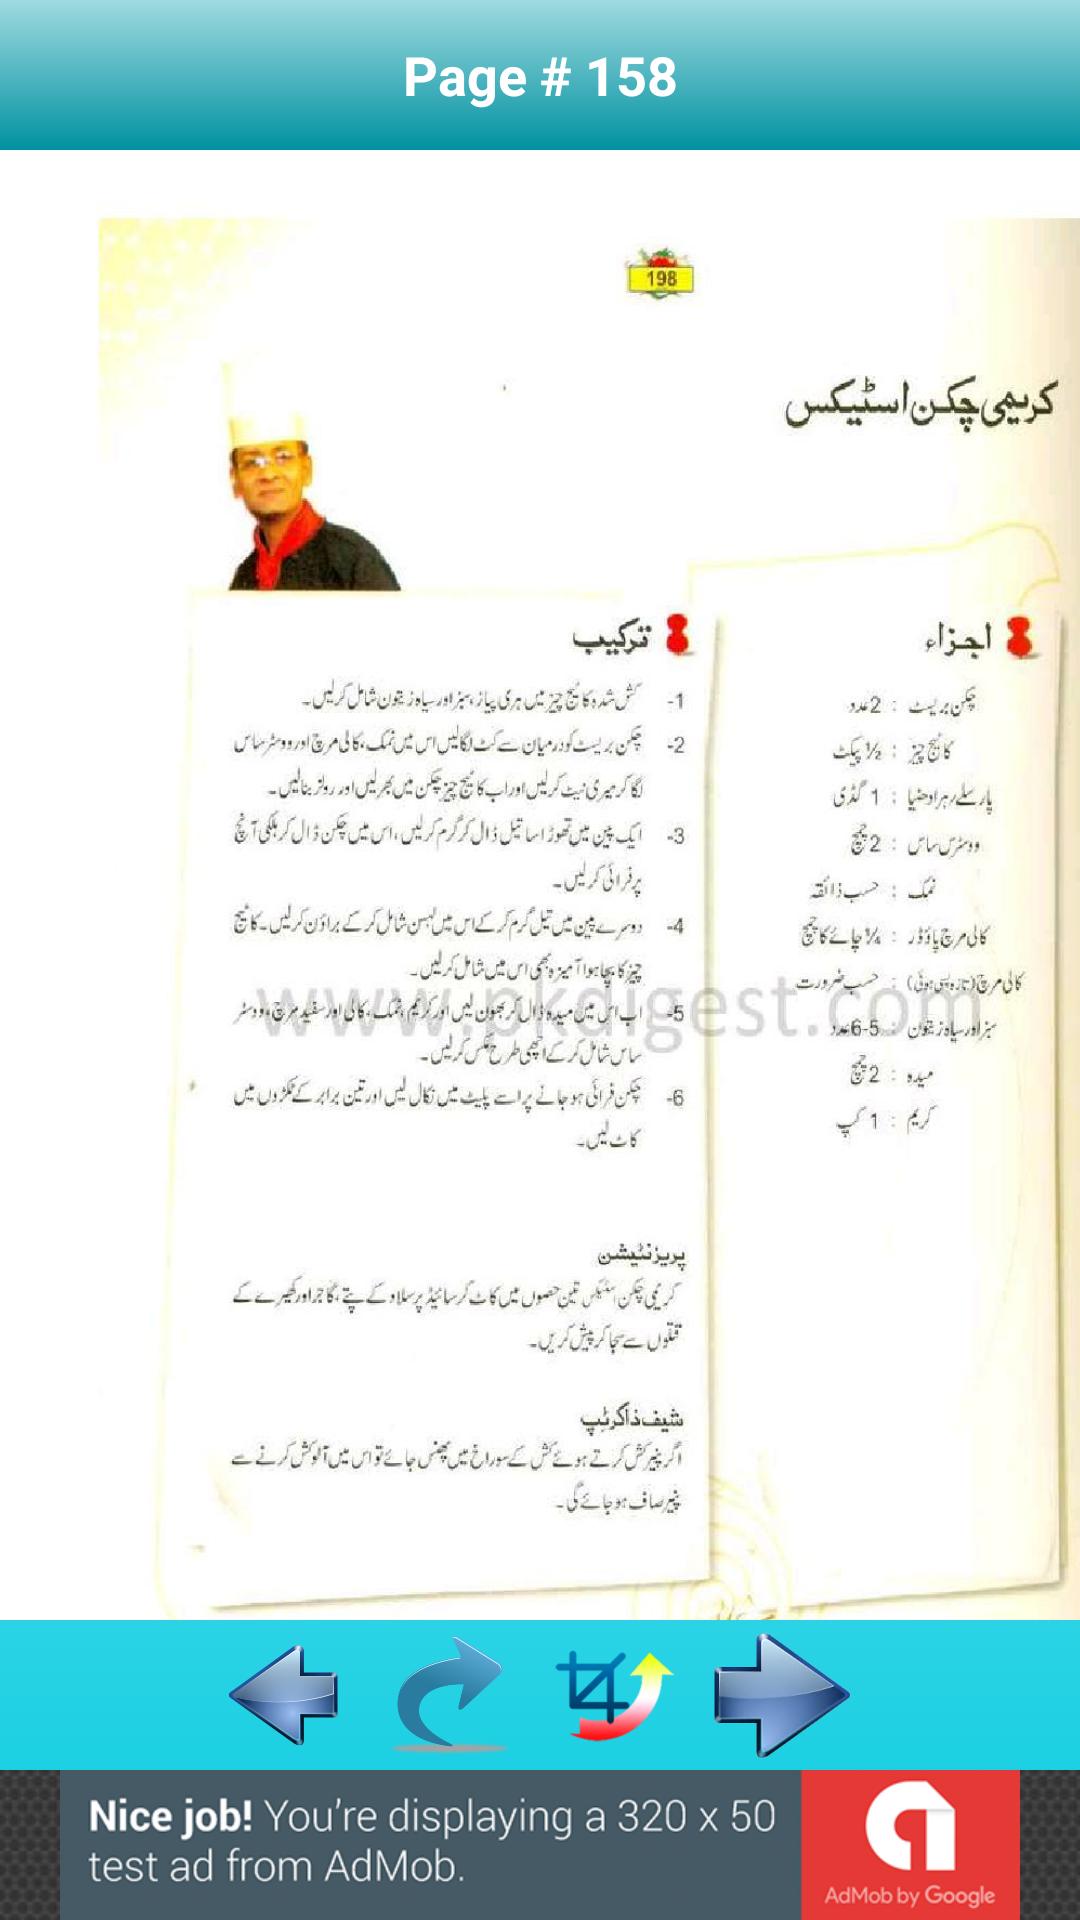 Page # 158
198
کریمی چکن اسٹیکس
اجزاء
چکن بریسٹ : 2 عدد
کاٹیج چیز : ½ پیکٹ
پارسلے رہرا دھنیا : 1 گڈی
ووسٹرس ساس : 2 چمچ
نمک : حسب ذائقہ
کالی مرچ پاؤڈر : ¼ چائے کا چمچ
کالی مرچ (تازہ پسی ہوئی) : حسب ضرورت
سبز اور سیاہ زیتون : 5-6 عدد
میدہ : 2 چمچ
کریم : 1 کپ
ترکیب
1- کش شدہ کاٹیج چیز میں ہری پیاز، سبز اور سیاہ زیتون شامل کرلیں۔
2- چکن بریسٹ کو درمیان سے کٹ لگالیں اس میں نمک، کالی مرچ اور ووسٹر ساس
لگا کر میری نیٹ کرلیں اور اب کاٹیج چیز چکن میں بھر لیں اور رولز بنالیں۔
3- ایک پین میں تھوڑا سا تیل ڈال کر گرم کرلیں، اس میں چکن ڈال کر ہلکی آنچ
پر فرائی کرلیں۔
4- دوسرے پین میں تیل گرم کرکے اس میں لہسن شامل کرکے براؤن کرلیں۔ کاٹیج
چیز کا بچا ہوا آمیزہ بھی اس میں شامل کرلیں۔
5- اب اس میں میدہ ڈال کر بھون لیں اور کریم، نمک، کالی اور سفید مرچ، ووسٹر
ساس شامل کرکے اچھی طرح مکس کرلیں۔
6- چکن فرائی ہوجانے پر اسے پلیٹ میں نکال لیں اور تین برابر کے ٹکڑوں میں
کاٹ لیں۔
پریزنٹیشن
کریمی چکن اسٹیکس تین حصوں میں کاٹ کر سائیڈ پر سلاد کے پتے، گاجر اور کھیرے کے
قتلوں سے سجا کر پیش کریں۔
شیف ذاکر ٹپ
اگر پنیر کش کرتے ہوئے کش کے سوراخ میں پھنس جائے تو اس میں آلو کش کرنے سے
پنیر صاف ہوجائے گی۔
www.pkdigest.com
Nice job! You're displaying a 320 x 50
test ad from AdMob.
AdMob by Google